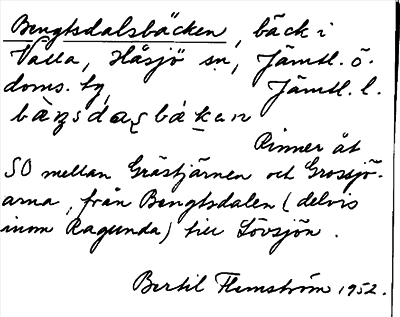 Bengtsdalsbäcken, bäck i
Valla, Håsjö sn, Jämtl. ö.
doms. tg, Jämtl. l.
Rinner åt
SO mellan Grästjärnen och Grossjö-
arna, från Bengtsdalen (delvis
inom Ragunda) till Lövsjön.
Bertil Flemström 1952.